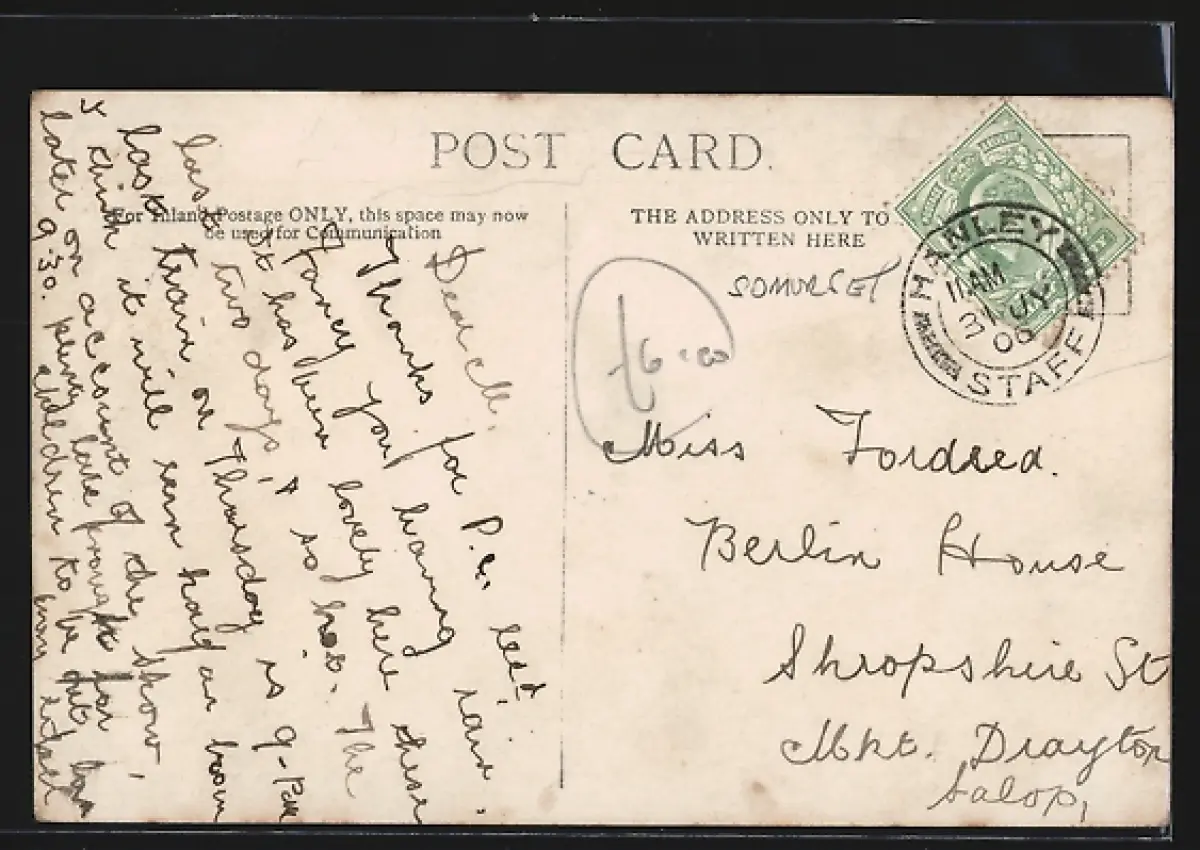 POST CARD.
For Inland Postage ONLY, this space may now
be used for Communication
THE ADDRESS ONLY TO
WRITTEN HERE
SOMERSET
£6.00
HANLEY
11 AM
31 JY
06
STAFF
Miss Fordred.
Berlin House
Shropshire St
Mkt. Drayton
Salop,
Dear M.
Thanks for P.C.
Fancy you having rain.
It has been lovely here these
last two days, & so hot. The
last train on Thursday is 9-
& think it will run half an hour
later on account of the show,
9.30. late for
children to be out